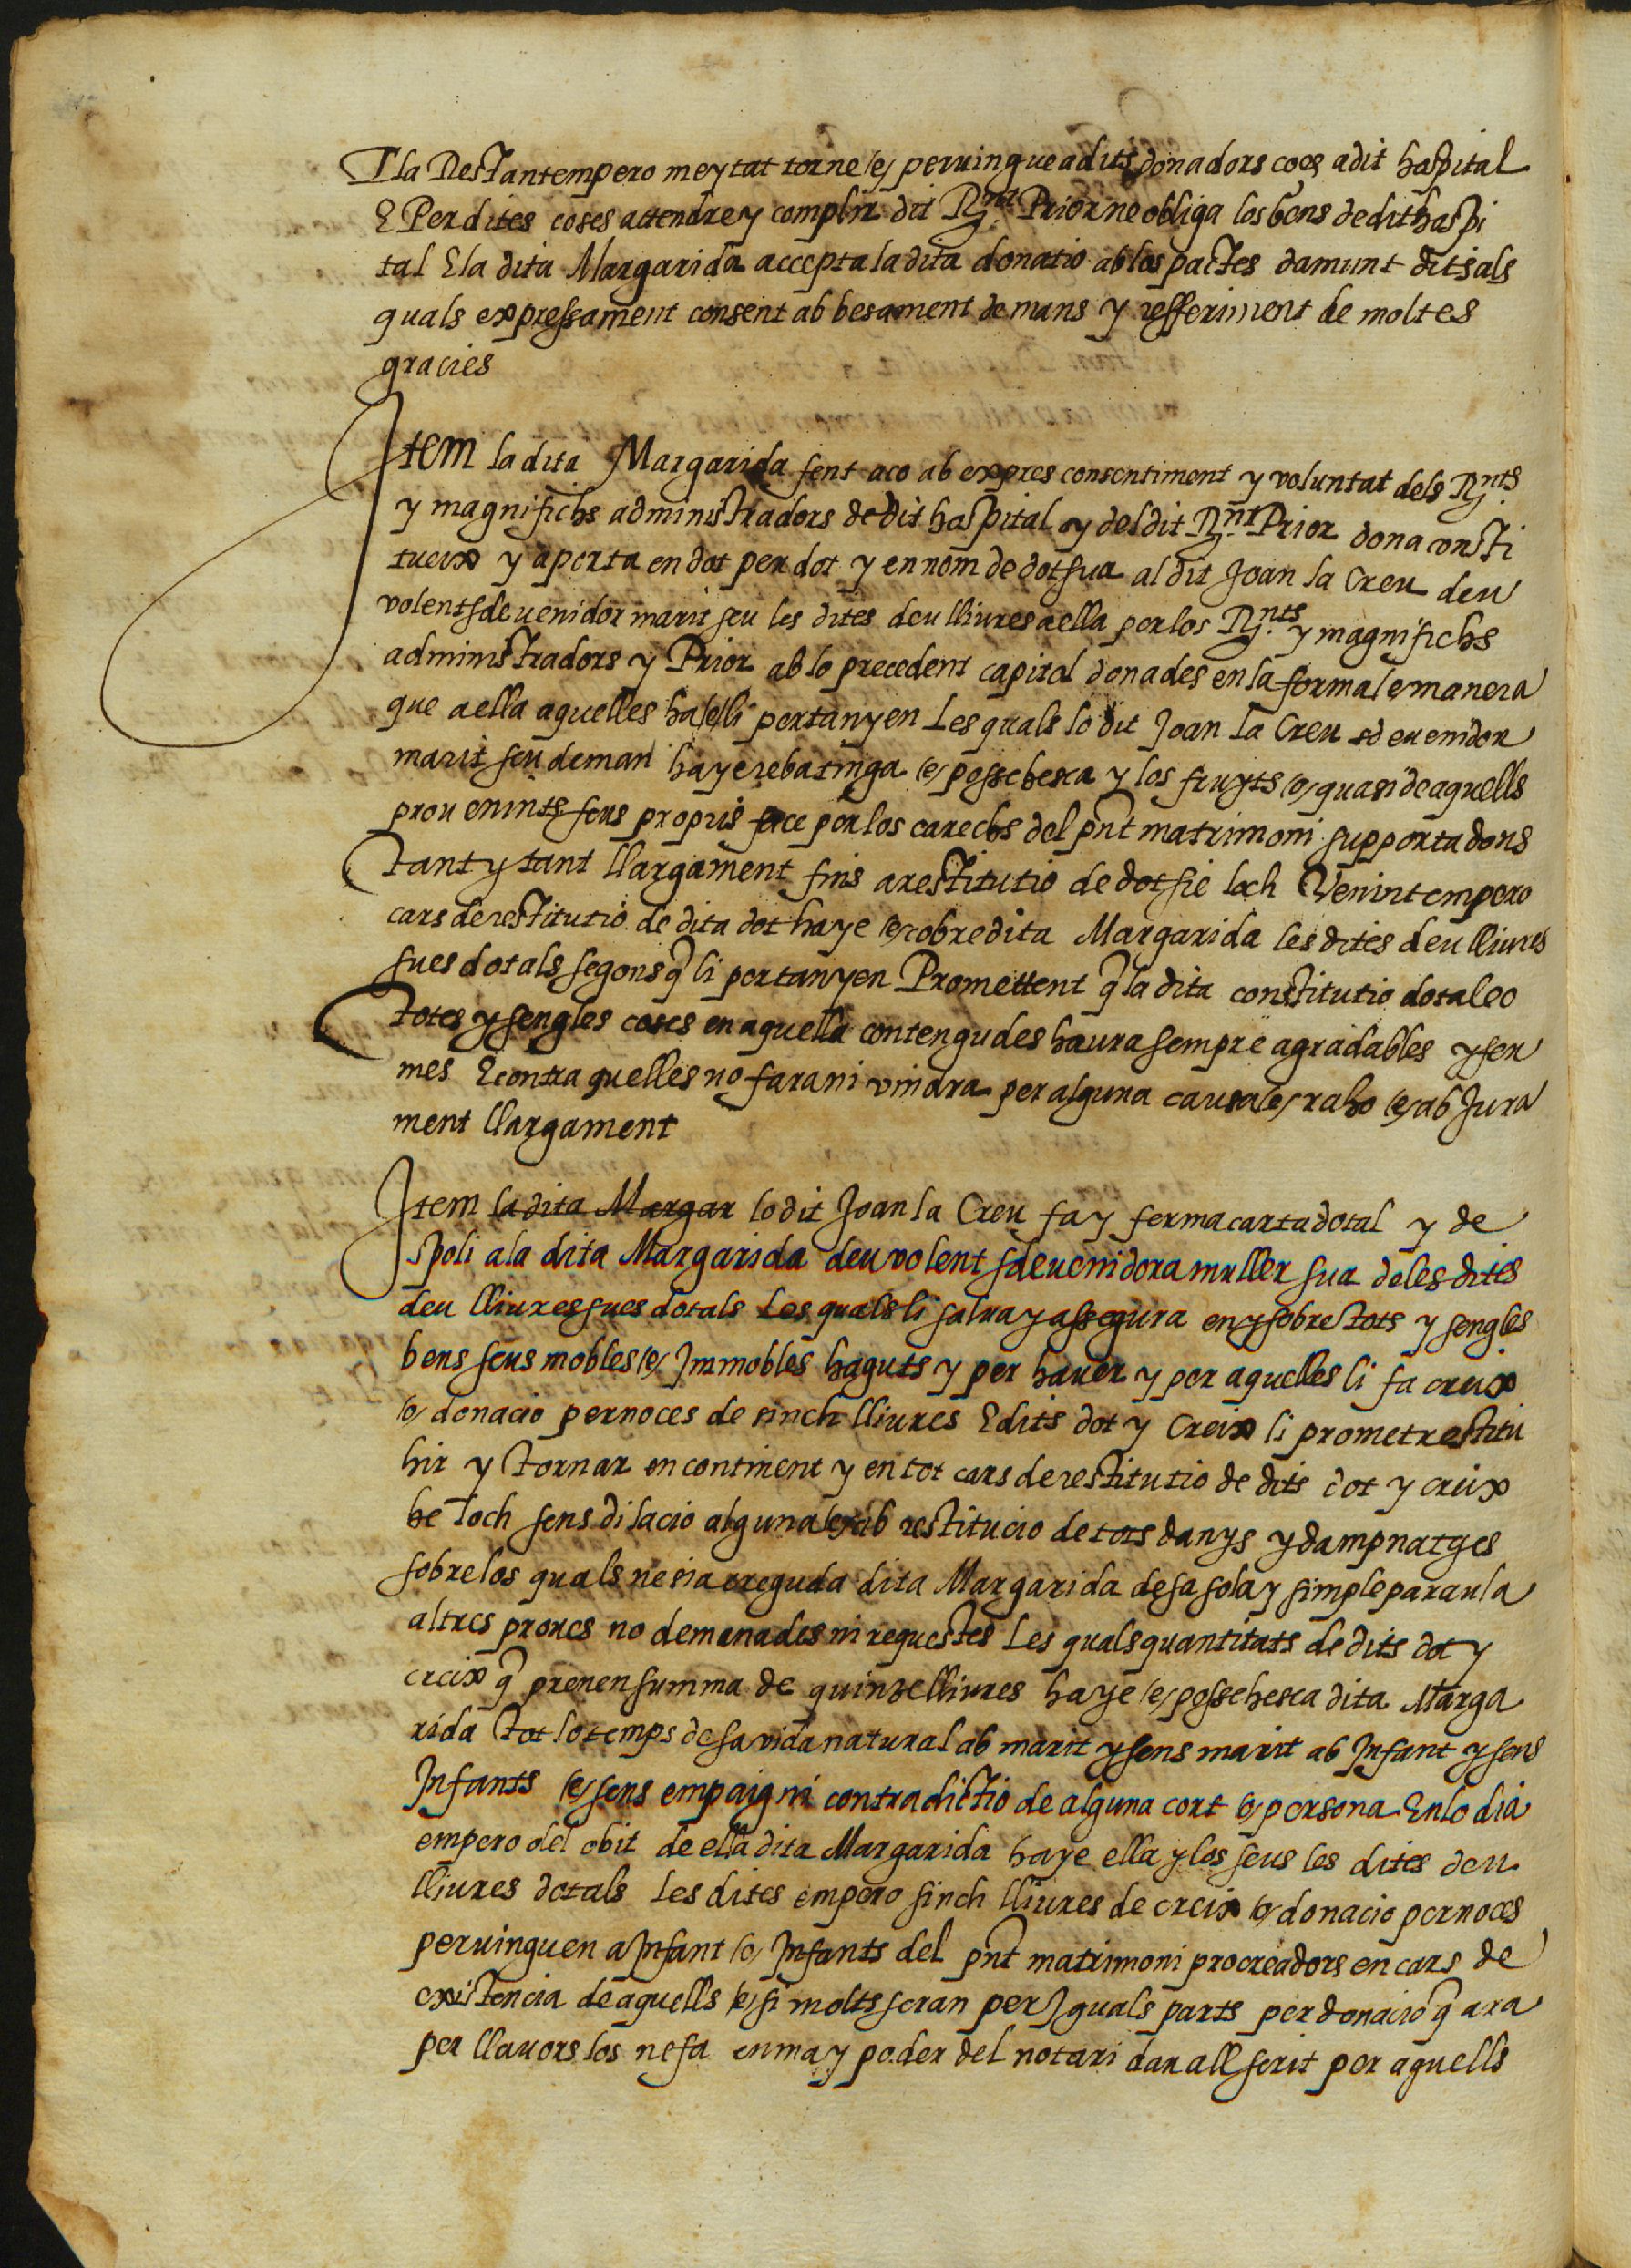 I la Restant empero meytat torne /e/ pervingue a dits donadors coes a dit hospital
E Per dites coses attendre y complir dit R.nt Prior ne obliga los bens de dit hospi
tal E la dita Margarida accepta la dita donatio ab los pactes damunt dits als
quals expressament consent ab besament de mans y refferiment de moltes
gracies
Item la dita Margarida fent aco ab expres consentiment y voluntat dels R.nts
y magnifichs administradors de dit hospital y del dit R.nt Prior dona consti
tueix y aporta en dot per dot y en nom de dot sua al dit Joan la Creu deu
volent sdevenidor marit seu les dites deu lliures a ella per los R.nts y magnifichs
administradors y Prior ab lo precedent capitol donades en la forma /e manera
que a ella aquelles ha /e/ li pertanyen Les quals lo dit Joan la Creu sdevenidor
marit seu deman haye reba tinga /e/ possehesca y los fruyts /e/ quasi de aquells
provenints seus propris face per los carrechs del pnt matrimoni supportadors
tant y tant llargament fins a restitutio de dot sie loch Venint empero
cars de restitutio de dita dot haye /e/ cobre dita Margarida les dites deu lliures
sues dotals segons q̃ li pertanyen Promettent q̃ la dita constitutio dotal eo
totes y sengles coses en aquella contengudes haura sempre agradables y fer
mes E contra quelles no fara ni vindra per alguna causa /e/ raho /e/ ab Jura
ment llargament
Item la dita Margar lo dit Joan la Creu fa y ferma carta dotal y de
spoli a la dita Margarida deu volent sdevenidora muller sua de les dites
deu lliures sues dotals Les quals li salva y assegura en y sobre tots y sengles
bens seus mobles /e/ Immobles haguts y per haver y per aquelles li fa creix
/e/ donacio per noces de sinch lliures E dits dot y Creix li promet restitu
hir y tornar encontinent y en tot cars de restitutio de dits dot y creix
he loch sens dilacio alguna /e/ ab restitucio de tots danys y dampnatges
sobre los quals ne sia creguda dita Margarida de sa sola y simple paraula
altres proves no demanades ni requestes Les quals quantitats de dits dot y
creix q̃ prenen summa de quinze lliures haye /e/ possehesca dita Marga
rida tot lo temps de sa vida natural ab marit y sens marit ab Infant y sens
Infants /e/ sens empaig ni contradictio de alguna cort /e/ persona En lo dia
empero del obit de ella dita Margarida haye ella y los seus les dites deu
lliures dotals Les dites empero sinch lliures de creix /e/ donacio per noces
pervinguen a Infant /e/ Infants del pnt matrimoni procreadors en cars de
existencia de aquells /e/ si molts seran per Iguals parts per donacio q̃ ara
per llavors los ne fa en ma y poder del notari davall scrit per aquells